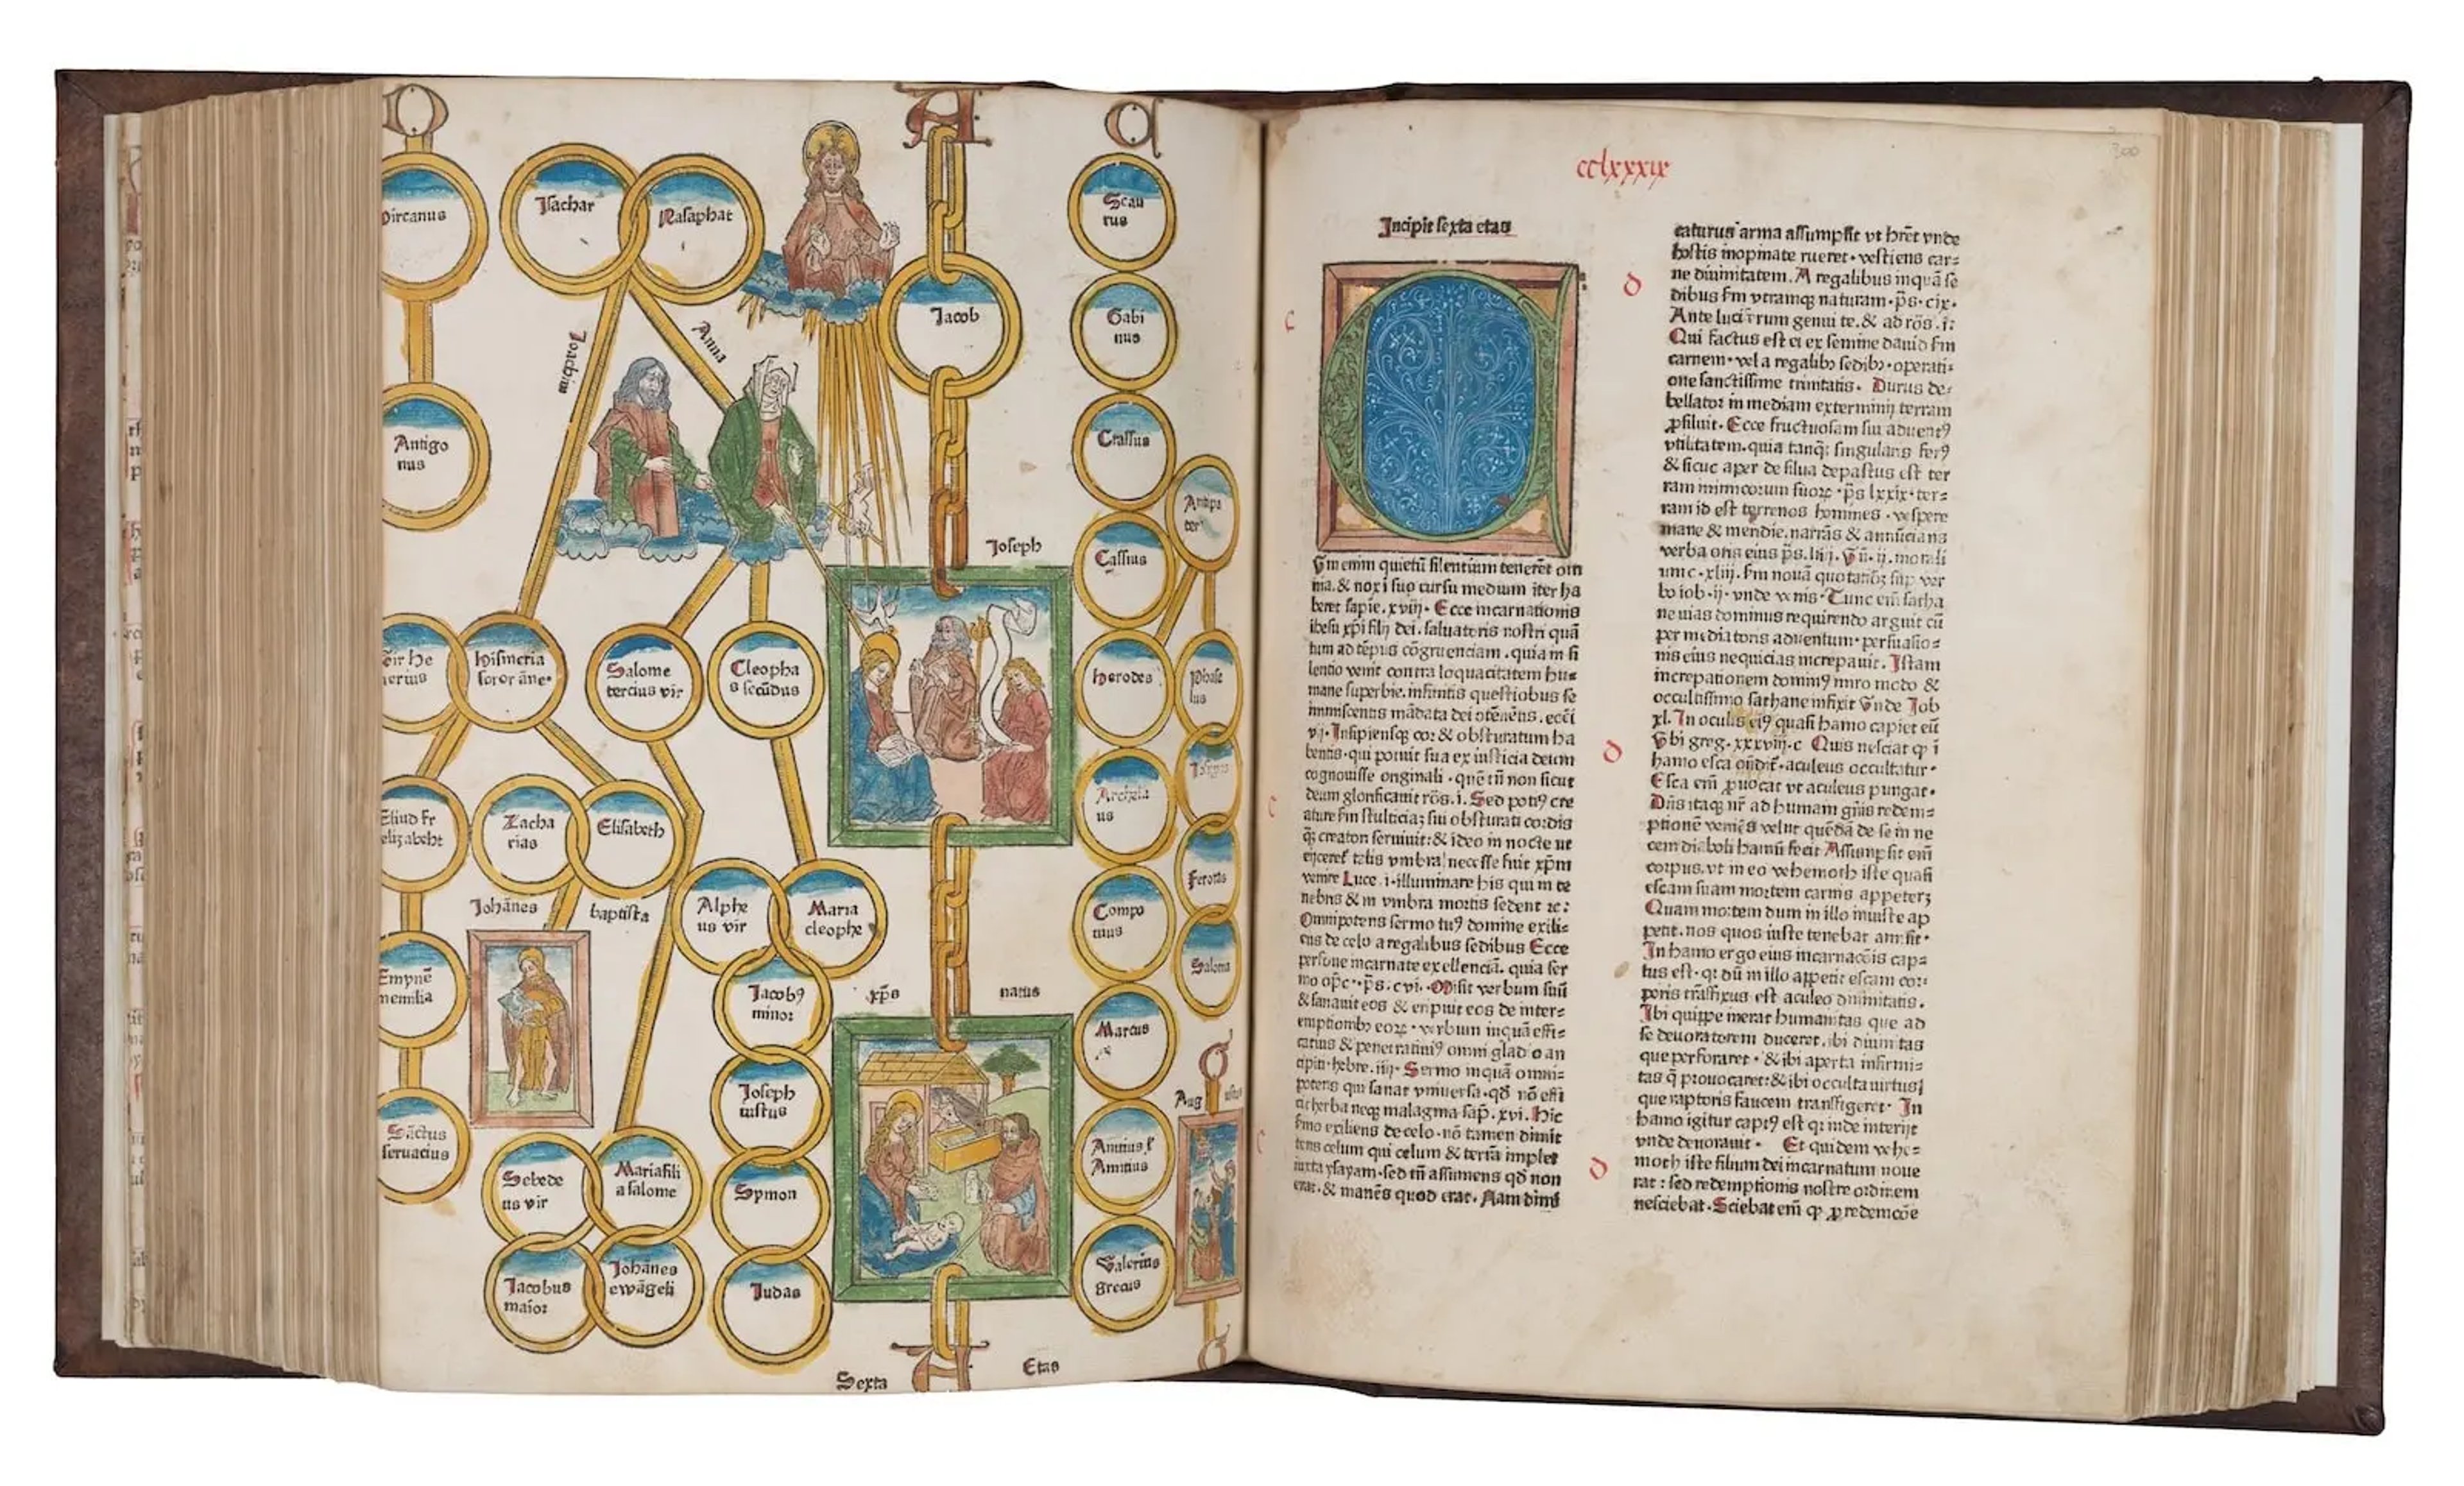 Isachar
Nasaphat
Scau
rus
Jacob
Gabi
nus
Joachim
Anna
Antigo
nus
Crassus
Joseph
Cassius
Antipa
ter
hismeria
soror āne·
Salome
tercius vir
Cleopha
s secūdus
herodes
Phase
lus
Zacha
rias
Elisabeth
Archela
us
Johānes
baptista
Alphe
us vir
Maria
cleophe
Compo
nius
Ferotas
Saloma
Jacobꝰ
minor
xp̄s
natus
Marcus
Joseph
iustus
Aug
ustus
Sebede
us vir
Mariafili
a salome
Symon
Jacobus
maior
Johānes
ewāgeli
Judas
Valerius
grecus
Sexta
Etas
cclxxxix
300
Incipit sexta etas
c
Vm enim quietū silentium teneret om
nia. & nox ī suo cursu medium iter ha
beret sapie. xviij· Ecce incarnationis
ihesu xp̄i filij dei. saluatoris nostri quā
tum ad tēpus cōgruenciam. quia in si
lentio venit contra loquacitatem hu=
mane superbie. infinitis questiobus se
vij· Insipiensqȝ cor & obscuratum ha
bentis· qui potuit sua ex iusticia deum
cognouisse originali· quē tn̄ non sicut
deum glorificauit rōs. i. Sed potiꝰ cre
c
ature fm stulticiaȝ sui obscurati cordis
qȝ creatori seruiuit: & ideo in nocte ut
eijceret talis vmbra! necesse fuit xp̄m
venire Luce· i· illuminare his qui in te
nebris & in vmbra mortis sedent ⁊c:
Omnipotens sermo tuꝰ domine exili=
ens de celo a regalibus sedibus Ecce
persone incarnate excellenciā. quia ser
mo op̄c··p̄s· cvi· Misit verbum suū
& sanauit eos & eripuit eos de inter=
verbum inquā effi=
cacius & penetratiuiꝰ omni gladio an
cipiti· hebre. iiij· Sermo inquā omni=
potens qui sanat vniuersa· qd̄ nō effi
herba neqȝ malagma sap̄. xvi. Hic
c
smo exiliens de celo· nō tamen dimit
tens celum qui celum & terrā implet
iuxta ysayam· sed tn̄ assumens qd̄ non
erat· & manēs quod erat. Nam dimi
caturus arma assumpsit vt hr̄et vnde
hostis inopinate rueret· vestiens car=
ne diuinitatem. A regalibus inquā se
d
dibus fm vtramqȝ naturam· p̄s· cix·
Ante luciferum genui te. & ad rōs. i:
Qui factus est ei ex semine dauid fm
carnem· vel a regalibȝ sedibȝ· operati=
one sanctissime trinitatis. Durus de=
bellator in mediam exterminij terram
ꝓsiluit· Ecce fructuosam sui aduentꝰ
vtilitatem. quia tanqȝ singularis ferꝰ
& sicut aper de silua depastus est ter
ram inimicorum suoꝝ· p̄s lxxix· ter=
ram id est terrenos homines· vespere
mane & meridie. narrās & annūcians
verba oris eius p̄s. liiij.
ne uias dominus requirendo arguit cū
per mediatoris aduentum· persuasio=
nis eius nequicias increpauit. Istam
increpationem dominꝰ miro modo &
occultissimo sathane infixit Vnde Job
xl. In oculis eiꝰ quasi hamo capiet eū
d
Vbi greg. xxxviij. c Quis nesciat qꝫ ī
hamo esca ondit̄· aculeus occultatur·
Esca em̄ ꝓuocat vt aculeus pungat·
Dn̄s itaqȝ nr̄ ad humani gn̄is redem=
ptionē veniēs velut quēdā de se in ne
cem diaboli hamū fecit Assumpsit em̄
corpus, vt in eo vehemoth iste quasi
escam suam mortem carnis appeterȝ
Quam mortem dum in illo iniuste ap
petit. nos quos iuste tenebat amisit·
In hamo ergo eius incarnacōis cap=
tus est· qꝛ dū in illo appetit escam cor=
poris trāsfixus est aculeo diuinitatis.
Ibi quippe inerat humanitas que ad
se deuoratorem duceret. ibi diuinitas
que perforaret· & ibi aperta infirmi=
tas q̄ prouocaret: & ibi occulta uirtus!
que raptoris faucem transfigeret· In
hamo igitur captꝰ est qꝛ inde interijt
vnde deuorauit· Et quidem vehe=
d
moth iste filium dei incarnatum noue
rat: sed redemptionis nostre ordinem
nesciebat. Sciebat em̄ qꝫ ꝓ redemcōe